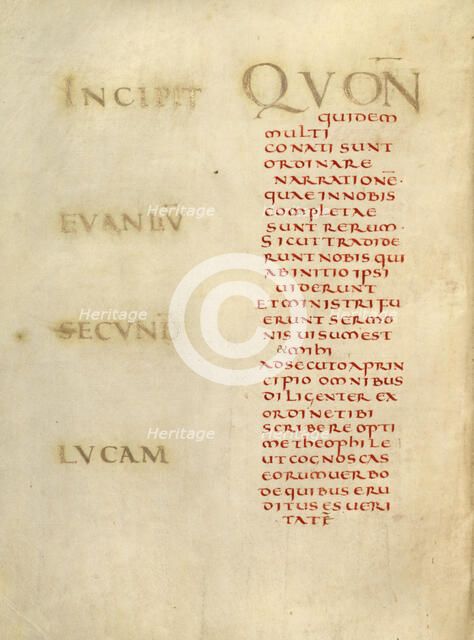 INCIPIT
EVANLIV̄
SECVND
LVCAM
QVON̄
QUIDEM
MULTI
CONATI SUNT
ORDINARE
NARRATIONĒ·
QUAE IN NOBIS
COMPLETAE
SUNT RERUM·
SICUT TRADIDE
RUNT NOBIS QUI
AB INITIO IPSI
UIDERUNT
ET MINISTRI FU
ERUNT SERMO
NIS UISUM EST
& MIHI
ADSECUTO A PRIN
CIPIO OMNIBUS
DILIGENTER EX
ORDINE TIBI
SCRIBERE OPTI
ME THEOPHILE
UT COGNOSCAS
EORUM UERBO
DE QUIBUS ERU
DITUS ES UERI
TATĒ
Heritage
Heritage
Heritage
Heritage
Heritage
Heritage
©